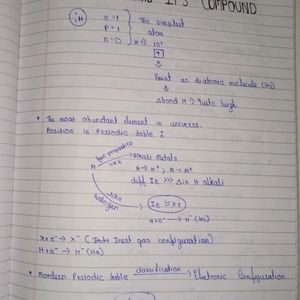 ITS COMPOUND
¹₁H e = 1
p = 1
n = 0
The simplest atom
H ⇒ 1s¹
↑
Exist as diatomic molecule (H₂)
Δbond H ⇒ Quite high
• The most abundant element in universe.
Position in Periodic table :
like
alkali metals
H → H⁺ ; M → M⁺
diff IE >>> Δin H alkali
H
like halogen
IE ≅ XI
H + e⁻ → H⁻ (He)
X + e⁻ → X⁻ ( Inert gas configuration)
H + e⁻ → H⁻ (He)
• Mordern Periodic table classification → Electronic Configuration